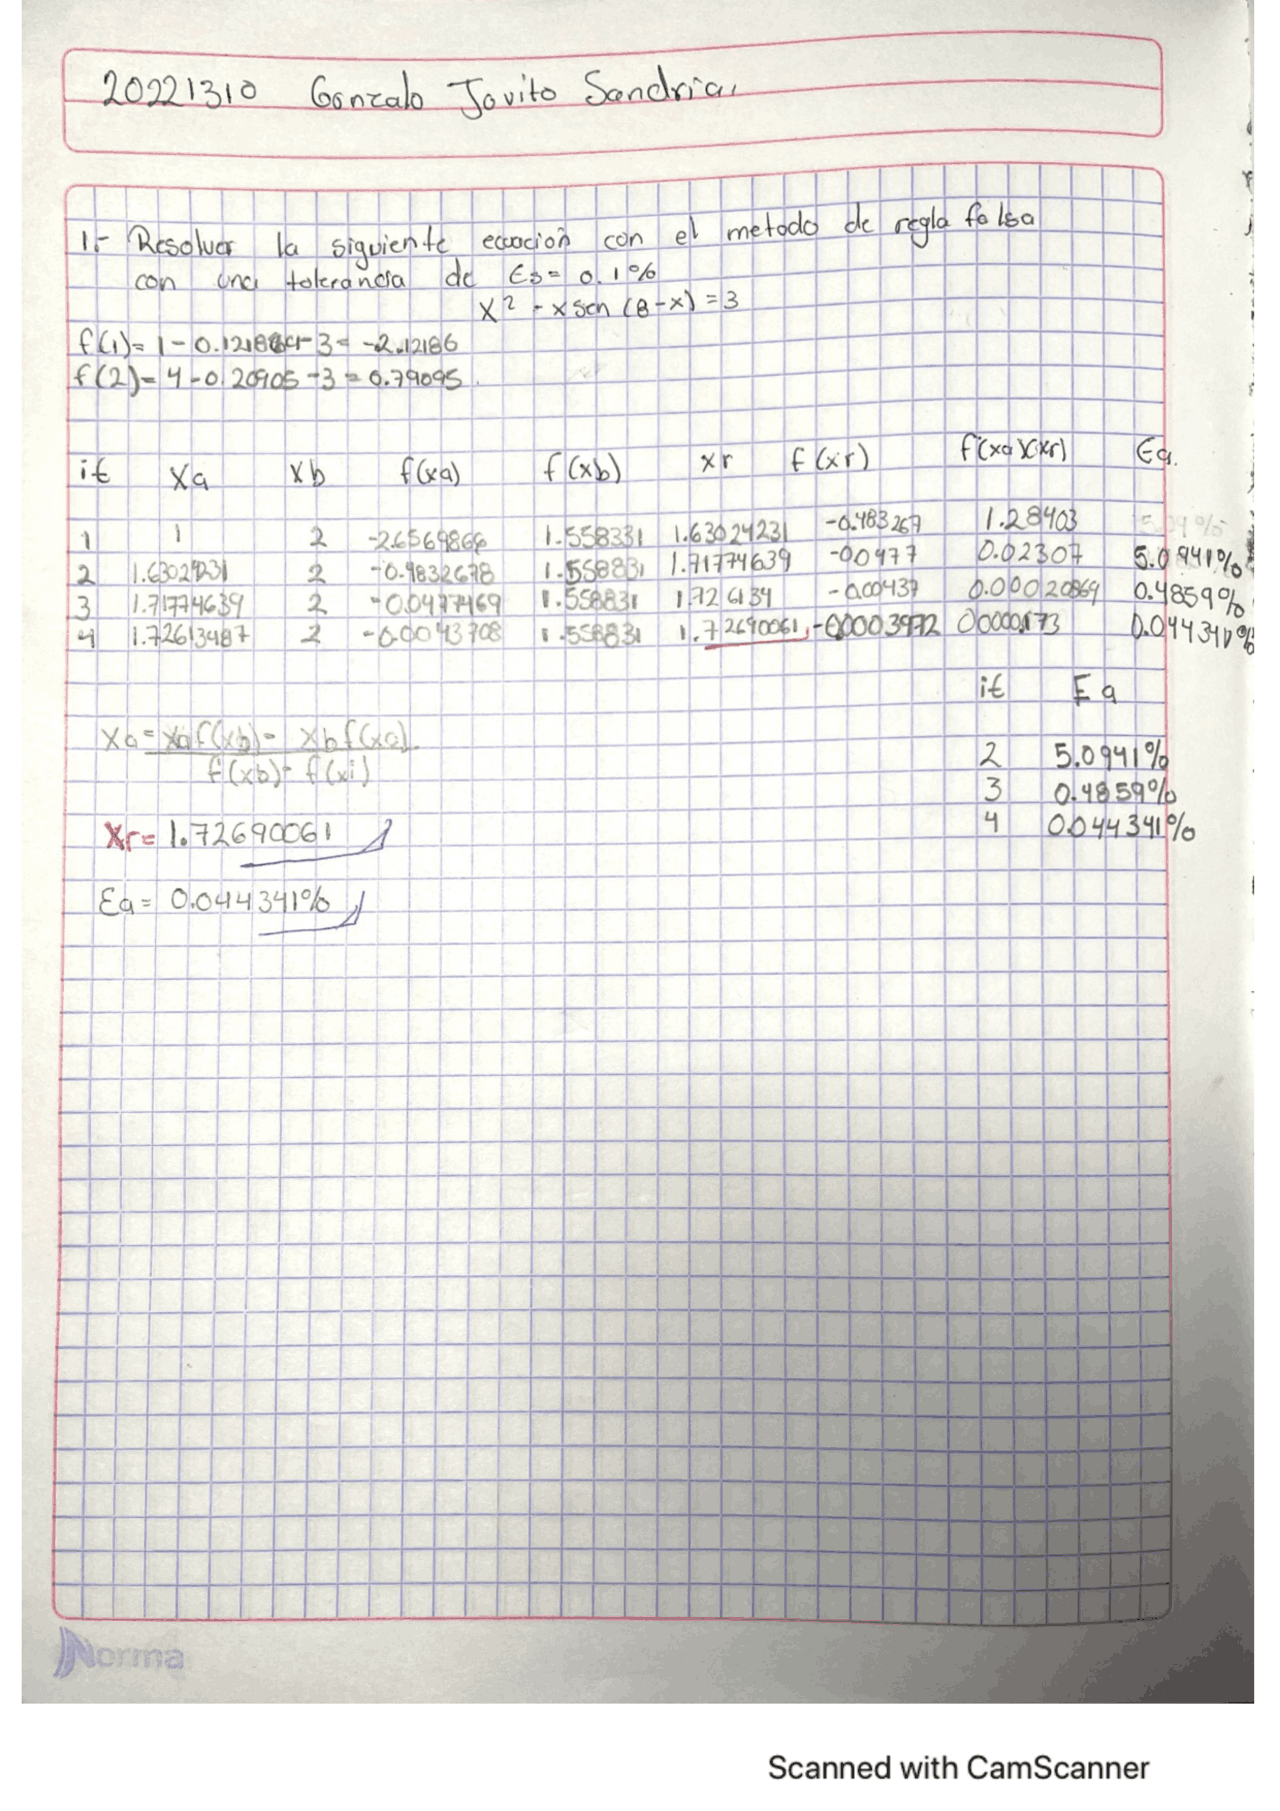 20221310 Gonzalo Jovito Sandria.
1.- Resolver la siguiente ecuación con el metodo de regla falsa
con una tolerancia de Es= 0.1%
x² - x sen (8-x) = 3
f(1)= 1 - 0.121869 - 3 = -2.12186
f(2)= 4 - 0.20905 - 3 = 0.79095.
it xa xb f(xa) f(xb) xr f(xr) f(xa)(xr) Ea.
1 1 2 -2.6569866 1.558331 1.63024231 -0.483267 1.28403
2 1.63024231 2 -0.4832678 1.558831 1.71774639 -00477 0.02307 5.0941%
3 1.71774639 2 -0.0477469 1.558831 1.726134 -0.00437 0.00020869 0.4859%
4 1.72613487 2 -0.0043708 1.558831 1.72690061 -0.0003972 00000.173 0.044341%
it Ea
Xa = xaf(xb) - xbf(xa)
f(xb) - f(xi)
2 5.0941%
3 0.4859%
4 0.044341%
Xr= 1.72690061
Ea= 0.044341%
Norma
Scanned with CamScanner